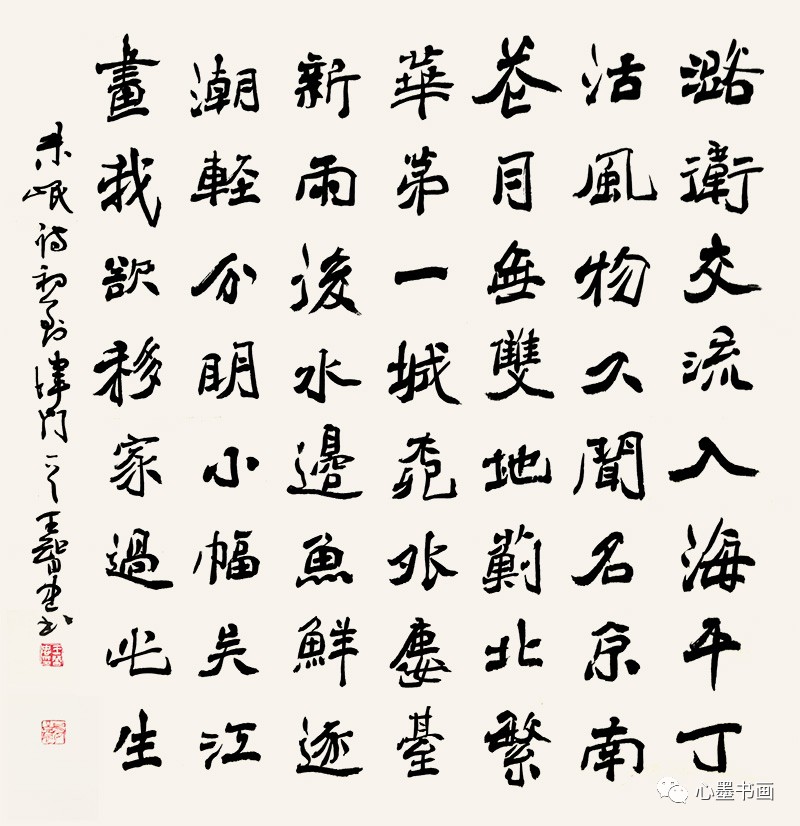 潞衛交流入海平丁
沽風物久聞名京南
花月無雙地薊北繁
華第一城苑外樓臺
新雨後水邊魚鮮逐
潮輕分明小幅吳江
畫我欲移家過此生
朱岷詩初到津門一首 王書
心墨书画